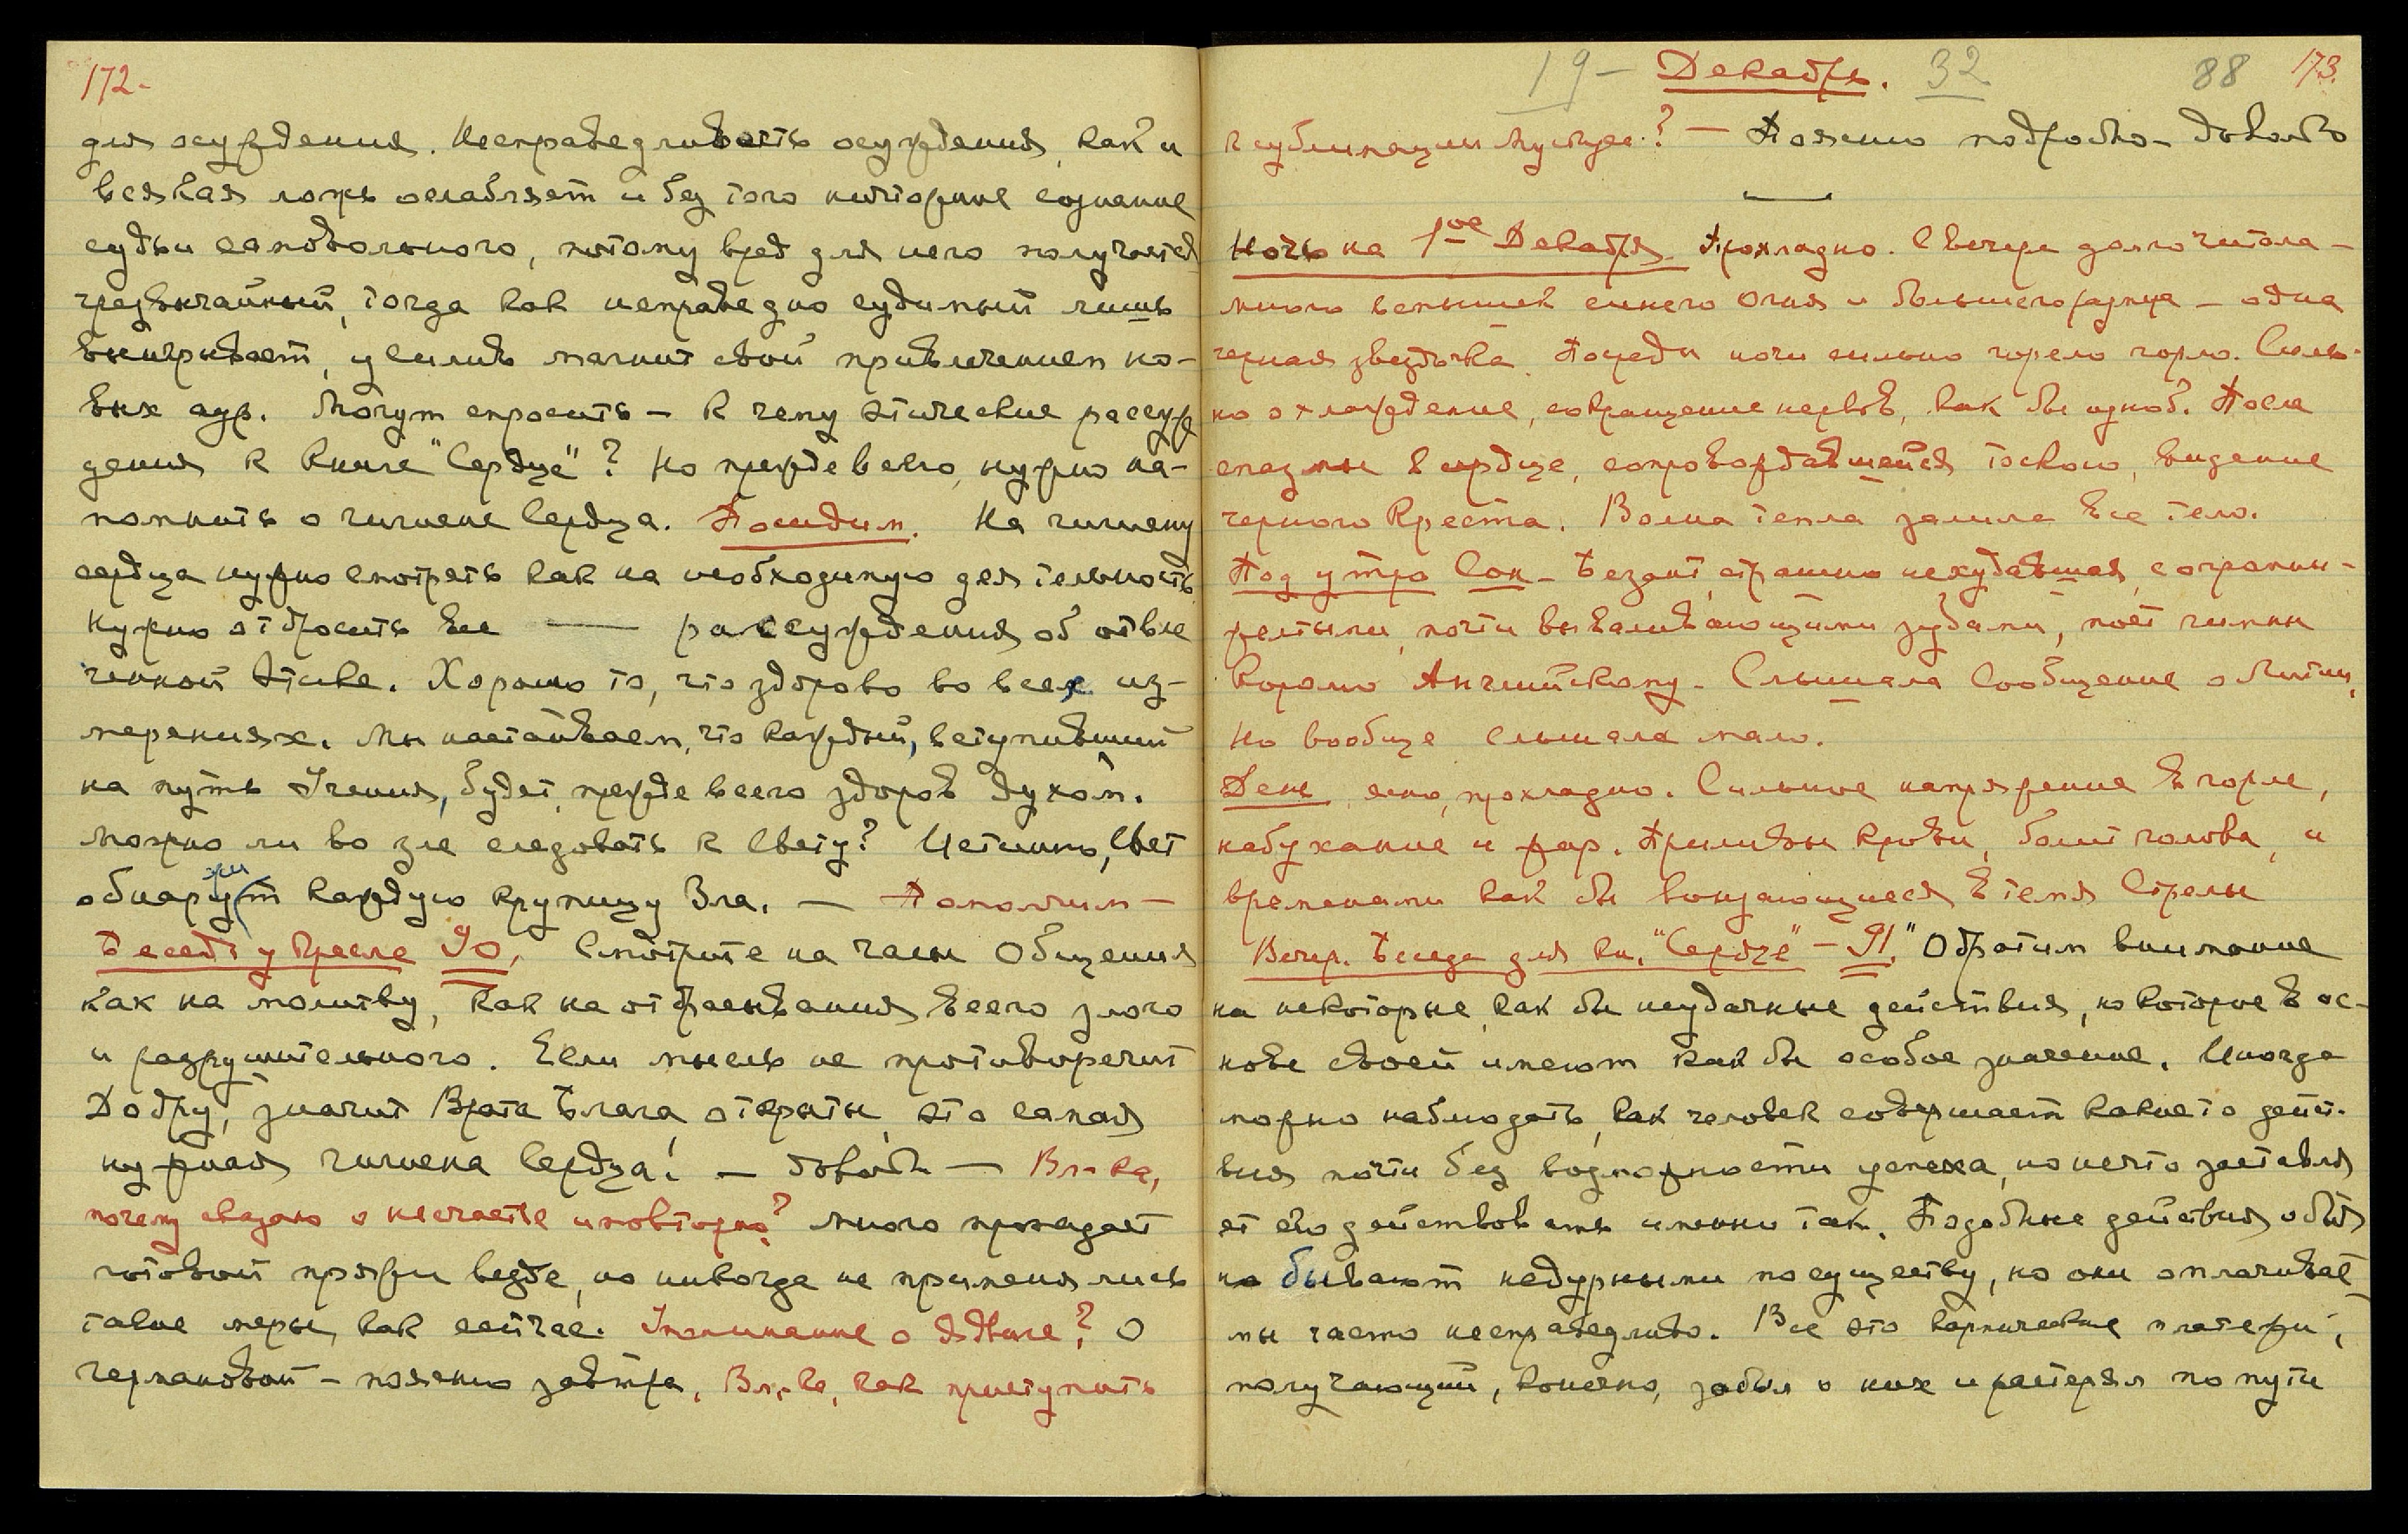 172-
для осуждения. Несправедливость осуждения, как и
всякая ложь ослабляет и без того ничтожное сознание
судьи самовольного, потому вред для него получается
чрезвычайный, тогда как неправедно судимый лишь
выигрывает, усилив магнит свой привлечением но-
вых аур. Могут спросить — к чему этические рассуж
дения к книге "Сердце"? Но прежде всего, нужно на-
помнить о гигиене Сердца. Посидим. На гигиену
сердца нужно смотреть как на необходимую деятельность
Нужно отбросить все — рассуждения об отвле
ченной этике. Хорошо то, что здорово во всех из-
мерениях. Мы настаиваем, что каждый, вступивший
на путь Учения, будет, прежде всего здоров духом.
Можно ли во зле следовать к Свету? Истинно, Свет
обнаружит каждую крупицу Зла. — Помолчим —
Беседа у кресла 90. Смотрите на часы Общения
как на молитву, как на отбрасывания всего злого
и разрушительного. Если мысль не противоречит
Добру, значит Врата Блага открыты, это самая
нужная гигиена Сердца! — Довольно — Вл-ка,
почему сказано о несчастье и повторно? Много пропадает
готовой пряжи везде, но никогда не применялись
такие меры, как сейчас. Упоминание о Ядвиге? О
германовой — поясню завтра, Вл-ка, как приступить
19 — Декабрь. 32 88 173.
к сублимации мускуса? — Поясню подробно — Довольно
Ночь на 1ое Декабря Прохладно. С вечера долго читала —
много вспышек синего огня и большего размера — одна
черная звездочка. Посреди ночи сильно горело горло. Силь-
но охлаждение, сокращение нервов, как бы озноб. После
спазмы в сердце, сопровождавшейся тоскою, видение
черного Креста. Волна тепла залила все тело.
Под утро Сон — Безант, страшно исхудавшая, с огромны-
желтыми, почти вываливающимися зубами, поет гимны
Королю Английскому. Слышала Сообщение о
но вообще слышала мало.
День ясно, прохладно. Сильное напряжение в горле,
набухание и жар. Приливы крови, болит голова, и
временами как бы вонзающиеся в темя Стрелы
Вечер. Беседа для кн. "Сердце" — 91. "Обратим внимание
на некоторые, как бы неудачные действия, но которые в ос-
нове своей имеют как бы особое значение. Иногда
можно наблюдать, как человек совершает какие то дейст-
вия почти без возможности успеха, но нечто заставля
ет его действовать именно так. Подобные действия обыч
но бывают недурными по существу, но они оплачивае
мы часто несправедливо. Все это кармические платежи,
получающий, конечно, забыл о них и растерял по пути